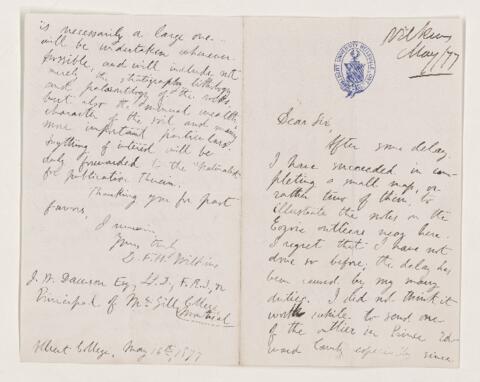 Wilkins
May/77
ALBERT UNIVERSITY BELLEVILLE ONT.
Dear Sir,
After some delay
I have succeeded in com-
pleting a small map, or
rather two of them, to
illustrate the notes on the
Eozoic outliers near here.
I regret that I have not
done so before, the delay has
been caused by my many
duties. I did not think it
worth while to send one
of the outlier in Prince Ed-
ward County especially since
is necessarily a large one
will be undertaken whenever
possible, and will include not
merely the stratigraphy, lithology
and palaeontology of the rocks,
but also the mineral wealth,
character of the soil and many
more important particulars.
Anything of interest will be
duly forwarded to the "Naturalist"
for publication therein.
Thanking you for past
favors,
I remain
Yours truly
D. F. H. Wilkins
J. W. Dawson Esq., LL.D., F.R.S.,
Principal of McGill College
Montreal
Albert College, May 16th, 1877